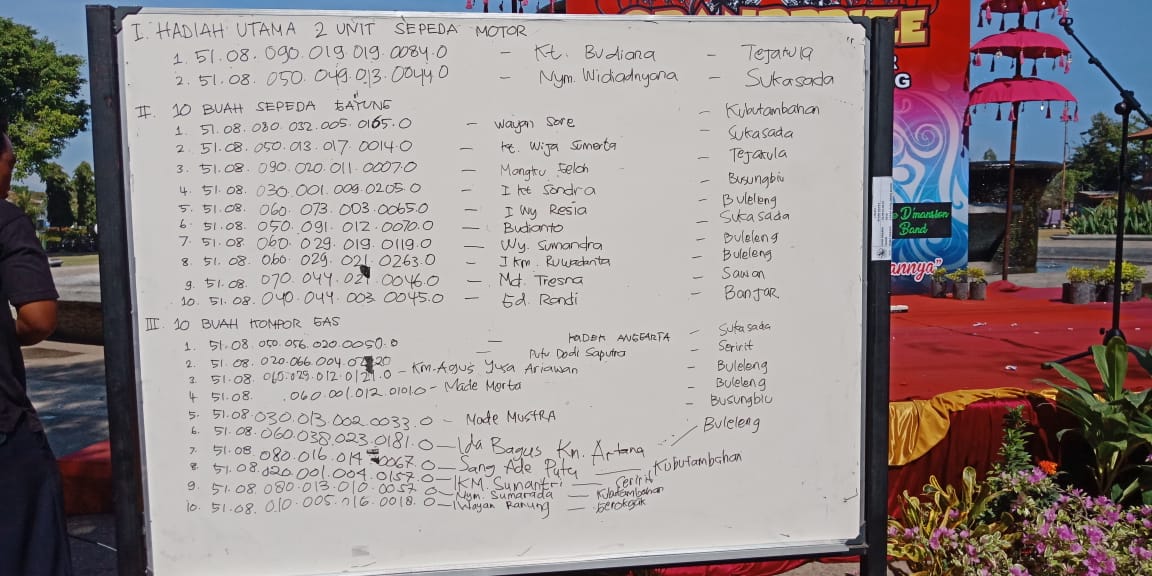 I. HADIAH UTAMA 2 UNIT SEPEDA MOTOR
1. 51.08.090.019.019.0084.0 - Kt. Budiana - Tejakula
2. 51.08.050.049.013.0044.0 - Nym. Widiadnyana - Sukasada
II. 10 BUAH SEPEDA GAYUNG
1. 51.08.080.032.005.0165.0 - Wayan Sore - Kubutambahan
2. 51.08.050.013.017.0014.0 - Kt. Wija Sumerta - Sukasada
3. 51.08.090.020.011.0007.0 - Mangku Geloh - Tejakula
4. 51.08.030.001.009.0205.0 - I Kt Sandra - Busungbiu
5. 51.08.060.073.003.0065.0 - I Wy Resia - Buleleng
6. 51.08.050.091.012.0070.0 - Budianto - Sukasada
7. 51.08.060.029.019.0119.0 - Wy. Sumandra - Buleleng
8. 51.08.060.029.021.0263.0 - I Km. - Buleleng
9. 51.08.070.044.021.0046.0 - Md. Tresna - Sawan
10. 51.08.040.044.003.0045.0 - Gd. Randi - Banjar
III. 10 BUAH KOMPOR GAS
1. 51.08.050.056.020.0050.0 - KADEK ANGGARTA - Sukasada
2. 51.08.020.066.004. - Putu Dodi Saputra - Seririt
3. 51.08.060.029.012.0121.0 - Km. Agus Yusa Ariawan - Buleleng
4 51.08. .060.001.012.0101.0 - Made Merta - Buleleng
5. 51.08.030.013.002.0033.0 - Made MUSTRA - Busungbiu
6. 51.08.060.038.023.0181.0 - Ida Bagus Kn. Artana - Buleleng
7. 51.08.080.016.014.0067.0 - Sang Ade Putu - Kubutambahan
8 51.08.020.001.004.0157.0 - IKM. Sumantri - Seririt
9. 51.08.080.013.010.0057.0 - Nym. Sumarada - Kubutambahan
10. 51.08.010.005.016.0018.0 - I Wayan Ranung - Gerokgak
G
D'mansion
Band
annya"